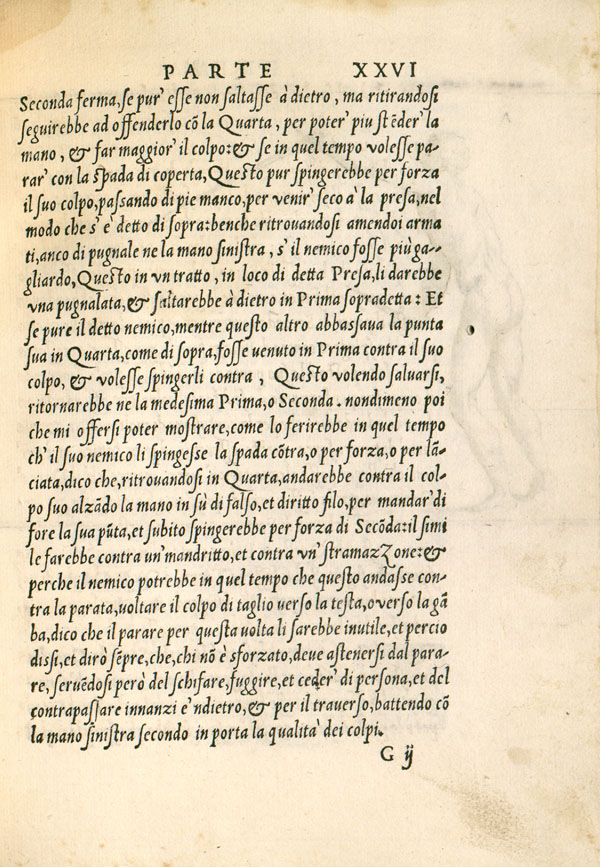 PARTE XXVI
Seconda ferma, se pur' esse non saltasse à dietro, ma ritirandosi
seguirebbe ad offenderlo cõ la Quarta, per poter' piu stẽder' la
mano, & far maggior' il colpo: & se in quel tempo volesse pa-
rar' con la spada di coperta, Questo pur spingerebbe per forza
il suo colpo, passando di pie manco, per venir' seco à la presa, nel
modo che s' è detto di sopra: benche ritrouandosi amendoi arma
ti, anco di pugnale ne la mano sinistra, s' il nemico fosse più ga-
gliardo, Questo in vn tratto, in loco di detta Presa, li darebbe
vna pugnalata, & saltarebbe à dietro in Prima sopradetta: Et
se pure il detto nemico, mentre questo altro abbassaua la punta
sua in Quarta, come di sopra, fosse venuto in Prima contra il suo
colpo, & volesse spingerli contra, Questo volendo saluarsi,
ritornarebbe ne la medesima Prima, o Seconda. nondimeno poi
che mi offersi poter mostrare, come lo ferirebbe in quel tempo
ch' il suo nemico li spingesse la spada cõtra, o per forza, o per lã-
ciata, dico che, ritrouandosi in Quarta, andarebbe contra il col-
po suo alzãdo la mano in sù di falso, et diritto filo, per mandar' di
fore la sua pũta, et subito spingerebbe per forza di Secõda: il simi
le farebbe contra un' mandritto, et contra vn' stramazzone: &
perche il nemico potrebbe in quel tempo che questo andasse con-
tra la parata, voltare il colpo di taglio uerso la testa, o uerso la gã
ba, dico che il parare per questa uolta li sarebbe inutile, et percio
dissi, et dirò sẽpre, che, chi nõ è sforzato, deue astenersi dal para-
re, seruẽdosi però del schifare, fuggire, et ceder' di persona, et del
contrapassare innanzi e 'ndietro, & per il trauerso, battendo cõ
la mano sinistra secondo in porta la qualita' dei colpi.
G ij